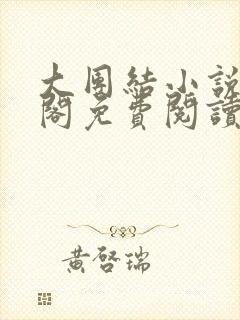 大團結小說
閣免費閱讀
黃啓瑞